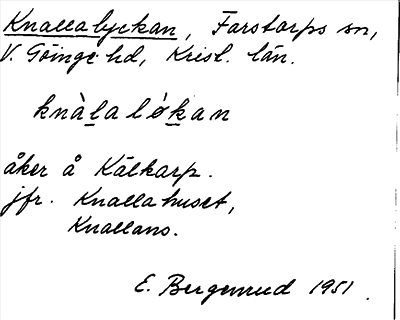 Knallalyckan, Farstorps sn,
V. Göinge hd, Krisl. län.
knàlaló̀kan
åker å Kälkarp.
jfr. Knallahuset,
Knallans.
E. Bergenrud 1951.